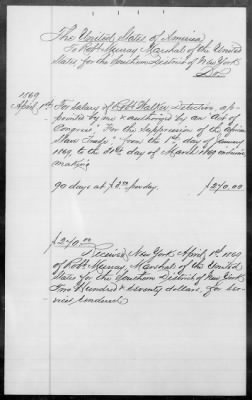 The United States of America
To Robt Murray Marshal of the United
States for the Southern District of New York
Dr
1869
April 1st For Salary of Robt Walker Detective ap-
pointed by me & authorized by an Act of
Congress, "For the suppression of the African
Slave Trade" from the 1st day of January
1869 to the 31st day of March 1869 inclusive
making
90 days at $3.00 per day. $270.00
$270.00
Received, New York, April 1st 1869
of Robt Murray, Marshal of the United
States for the Southern District of New York
Two Hundred & seventy dollars, for ser-
vices rendered.